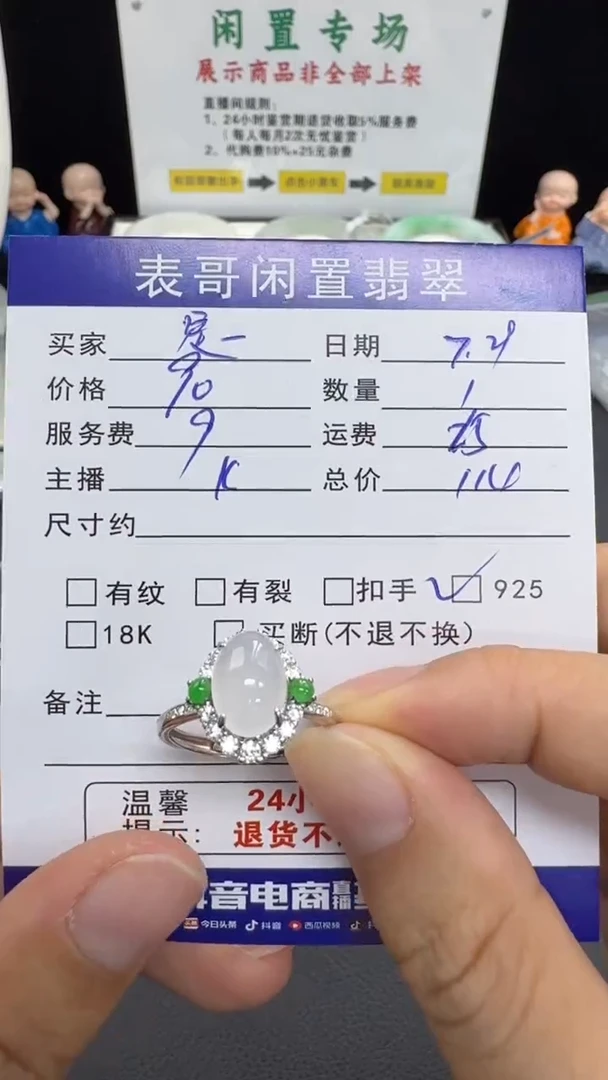 闲置专场
展示商品非全部上架
直播间规则:
1、24小时鉴赏期退货收取5%服务费
(每人每月2次无忧鉴赏)
2、代购费10%+25元杂费
表哥闲置翡翠
买家 定一 日期 7.21
价格 90 数量 1
服务费 9 运费
主播 K 总价 114
尺寸约
有纹 有裂 扣手 925
18K 买断(不退不换)
备注
温馨 24小
提示: 退货不
音电商直播
今日头条 抖音 西瓜视频